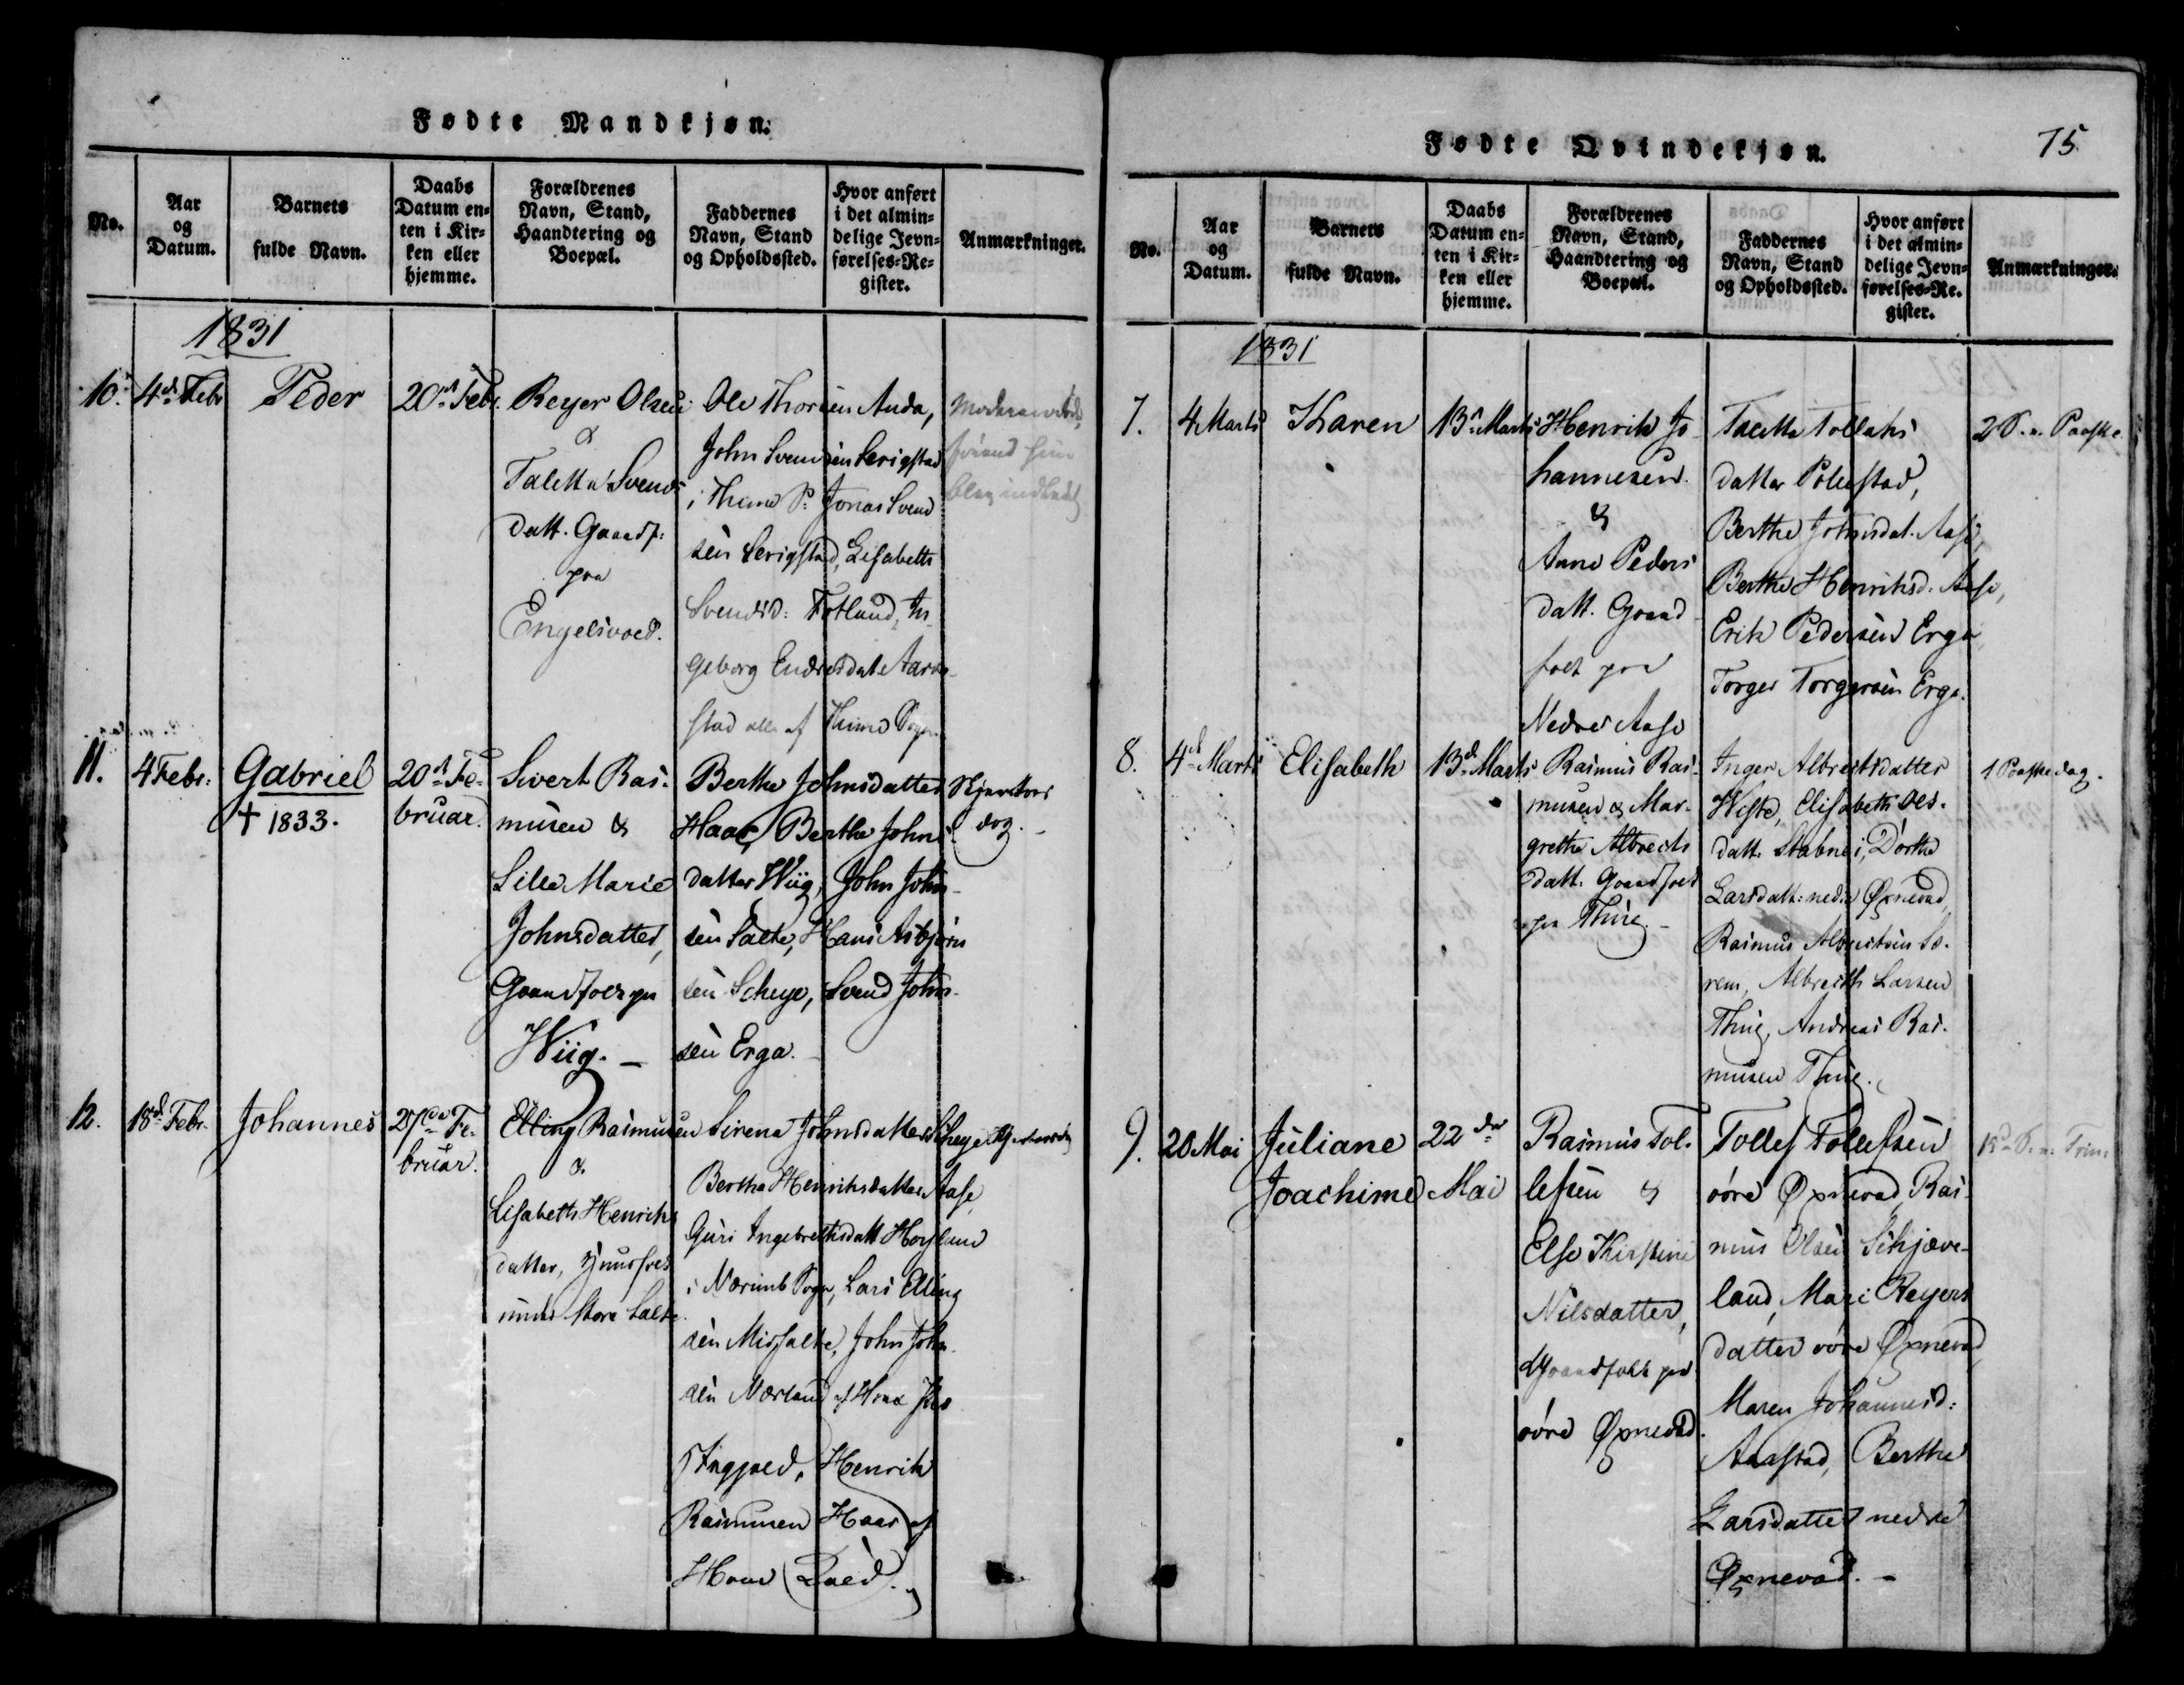 Fødte Mandkjøn.
No.
Aar
og
Datum.
Barnets
fulde Navn.
Daabs
Datum en-
ten i Kir-
ken eller
hjemme.
Forældrenes
Navn, Stand,
Haandtering og
Boepæl.
Faddernes
Navn, Stand
og Opholdssted.
Hvor anført
i det almin-
delige Jevn-
førelses-Re-
gister.
Anmærkninger.
1831
10.
4de Febr
Peder
20de Febr.
Reyer Olsen
&
Taletta Svends
datt. Gaardf:
paa
Engelsvold.
Ole Thorsen Anda,
John Svendsen Serigstad
i Thime P: Jonas Svend
sen Serigstad, Lisabeth
Svendsd: Fotland, In
geborg Endresdat. Aare
stad alle af Thime Sogn.
11.
4 Febr:
Gabriel
† 1833.
20de Fe-
bruar.
Sivert Ras-
musen &
Sille Marie
Johnsdatter,
Gaardfolk paa
Wiig. -
Berthe Johnsdatter
Haar, Berthe Johns
datter Wiig, John John-
sen Salte, Hans Asbjörn
sen Scheye, Svend John-
sen Erga.
dog. -
12.
18de Febr.
Johannes
27de Fe-
bruar.
Elling Rasmusen
&
Lisabeth Henriks
datter,
under Store Salte.
Sirena Johnsdatter Scheye
Berthe Henriksdatter Aase,
Guri Ingebrethsdatt Hoyland
i Nærimb Sogn, Lars Elling
sen Midsalte, John John
sen Nærland af
Henrik
Rasmusen Haar af
Fødte Qvindekjøn.
75
No.
Aar
og
Datum.
Barnets
fulde Navn.
Daabs
Datum en-
ten i Kir-
ken eller
hjemme.
Forældrenes
Navn, Stand,
Haandtering og
Boepæl.
Faddernes
Navn, Stand
og Opholdssted.
Hvor anført
i det almin-
delige Jevn-
førelses-Re-
gister.
Anmærkninger.
1831
7.
4 Marts
Karen
13de Marts
Henrik Jo
hannesen
&
Anne Peders
datt. Gaard
folk paa
Nedre Aase
Taletta Tollaks
datter Polestad,
Berthe Johnsdat. Aase,
Berthe Henriksd. Aase,
Erik Pedersen Erga
Torger Torgersen Erga.
2 S. e. Paaske
8.
4de Marts
Elisabeth
13de Marts
Rasmus Ras-
musen & Mar-
grethe Albrects
datt. Gaardfolk
paa Thue. -
Inger Albrectsdatter
Wiste, Elisabeth Ols-
datt. Stabnei, Dorthe
Larsdatt: nedre Øxnevad,
Rasmus Albrectsen Sø-
rem, Albrecth Larsen
Thue, Andreas Ras-
musen Thue.
1 Paaskedag.
9.
20 Mai
Juliane
Joachime
22de
Mai
Rasmus Tol-
lefsen &
Else Kirstine
Nilsdatter,
Gaardfolk paa
övre Øxnevad.
Tollef Tollefsen
övre Øxnevad, Ras
mus Olsen Schjæve-
land, Mari Reyers
datter övre Øxnevad,
Maren Johannesd:
Aaastad, Berthe
Larsdatter nedre
Øxnevad. -